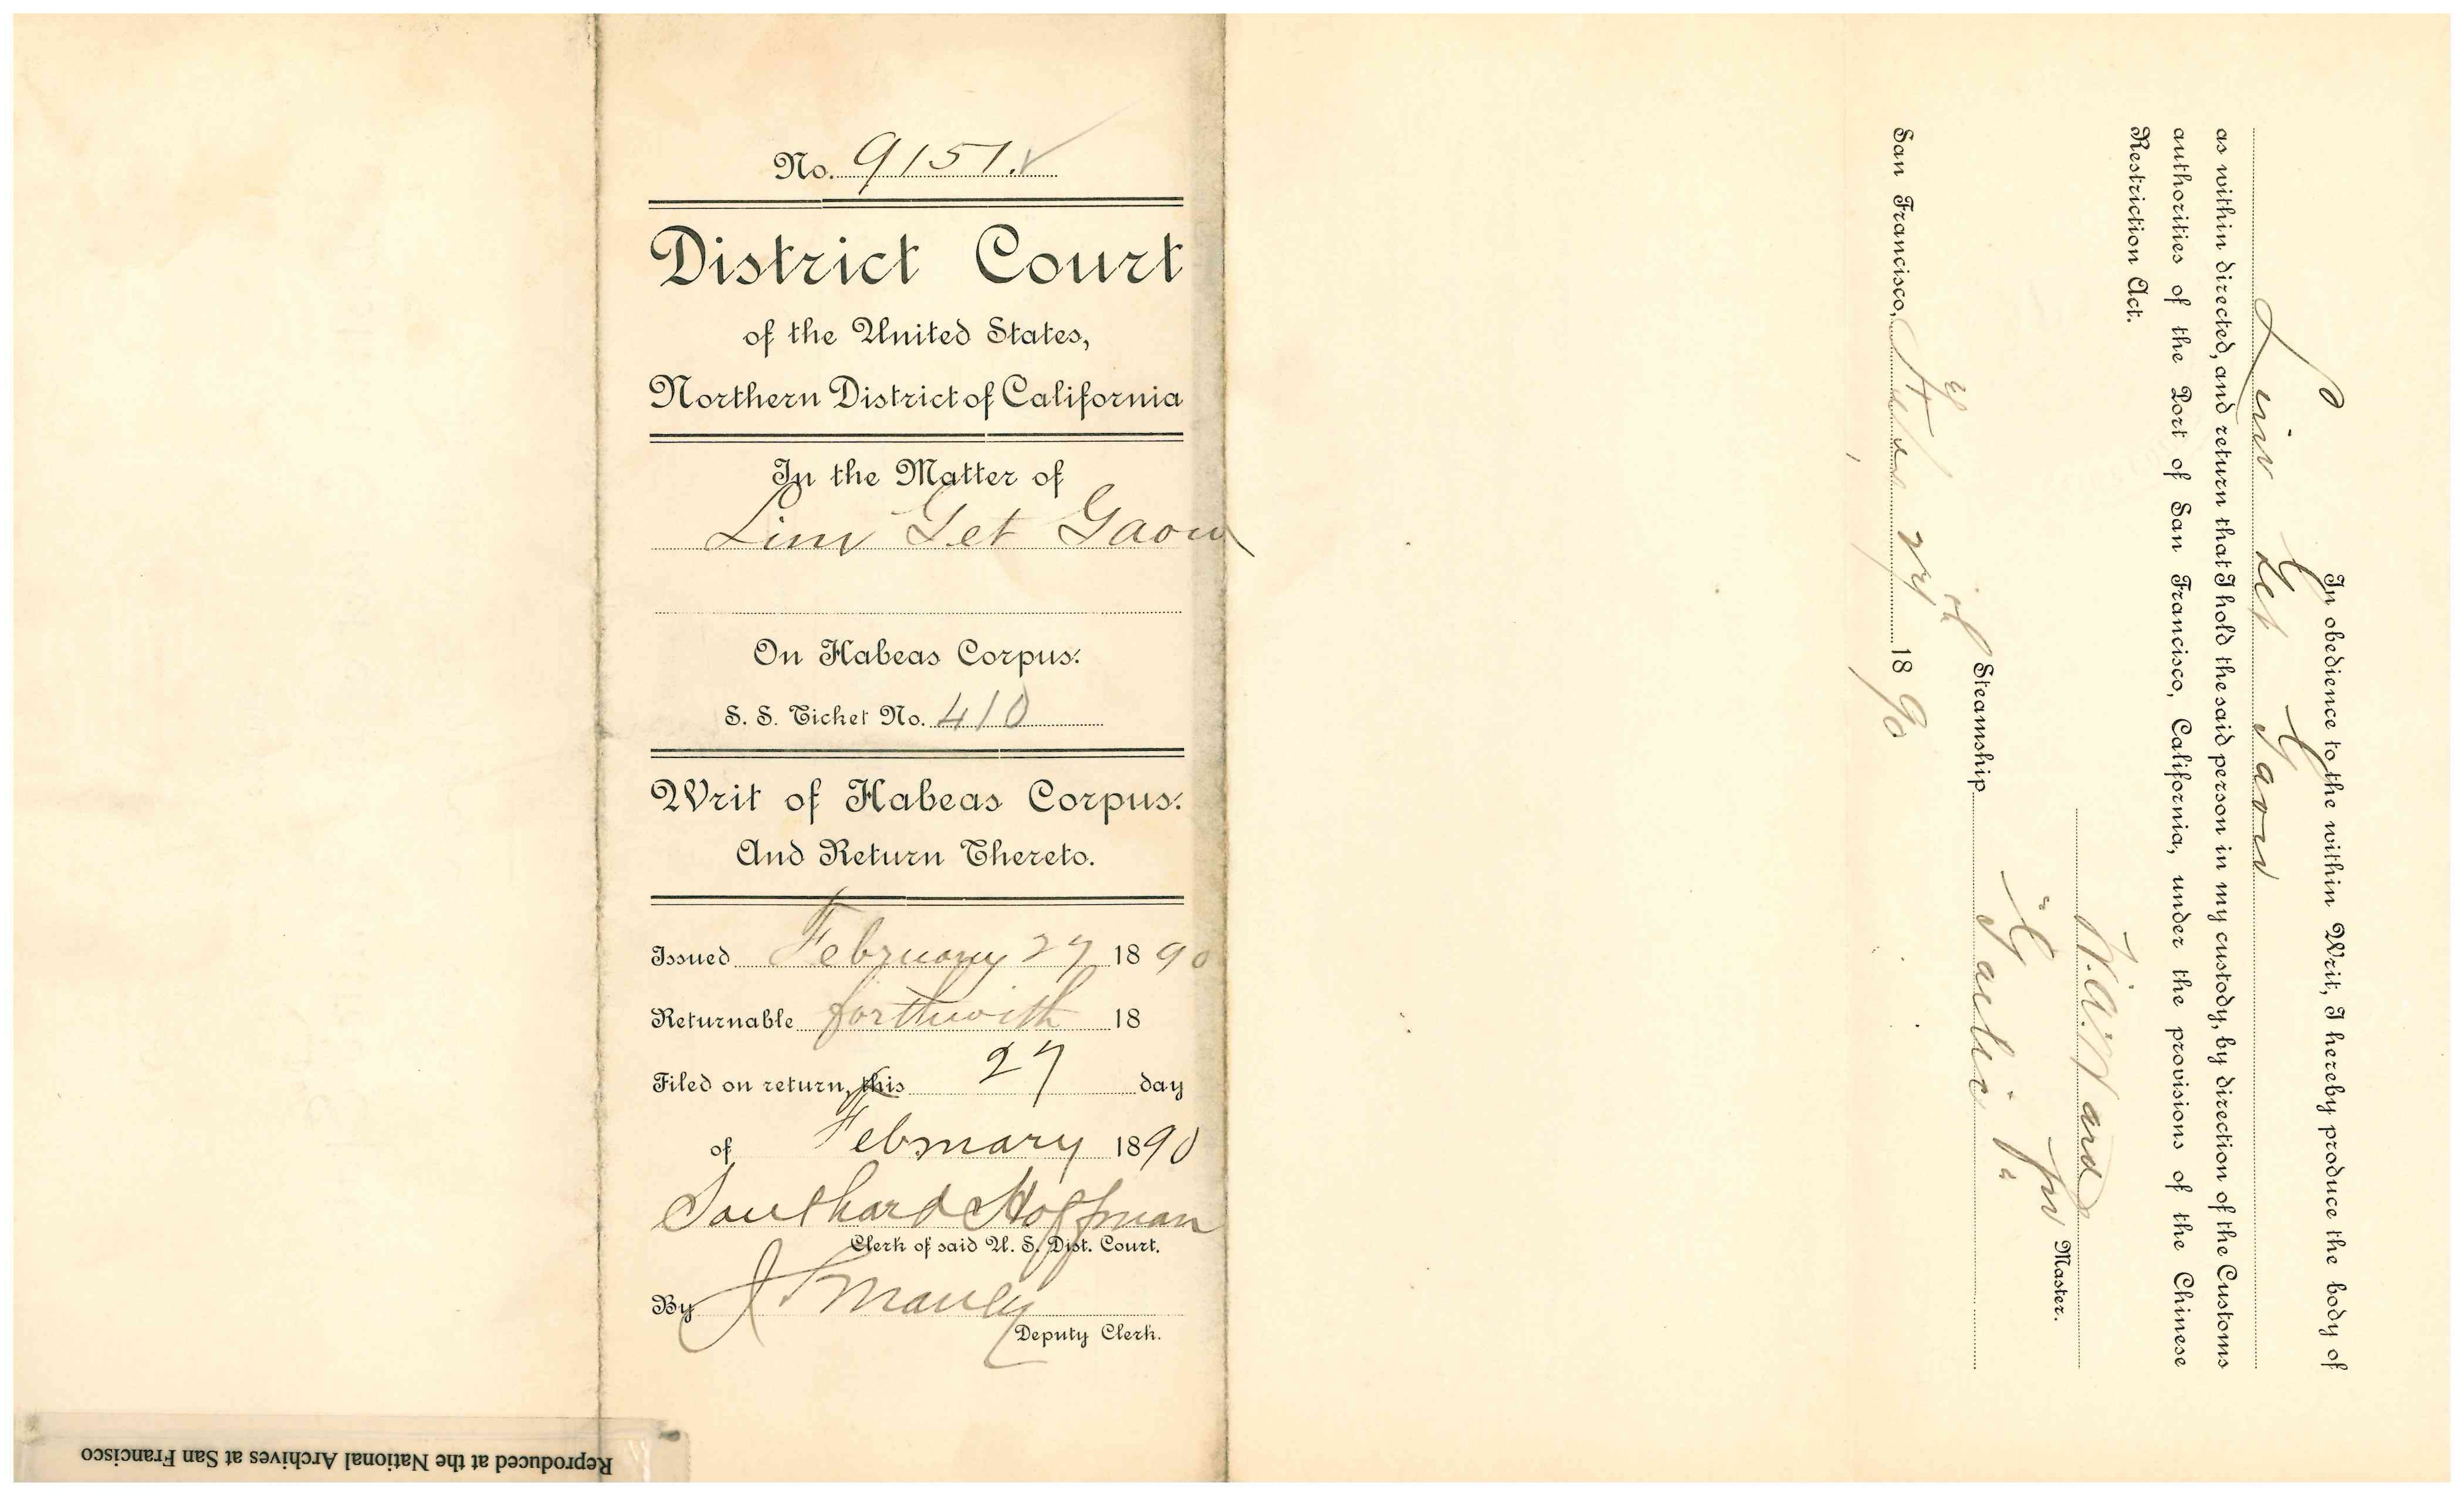 No. 9151.
District Court
of the United States,
Northern District of California
In the Matter of
Lim Get Gaow
On Habeas Corpus.
S. S. Ticket No. 410
Writ of Habeas Corpus.
And Return Thereto.
Issued February 27 1890
Returnable forthwith 18
Filed on return, this 27 day
of February 1890
Southard Hoffman
Clerk of said U. S. Dist. Court.
By
Deputy Clerk.
Reproduced at the National Archives at San Francisco
In obedience to the within Writ, I hereby produce the body of
Lim Get Gaow
as within directed, and return that I hold the said person in my custody, by direction of the Customs
authorities of the Port of San Francisco, California, under the provisions of the Chinese
Restriction Act.
Master.
Steamship "Gaelic"
San Francisco, 27 1890